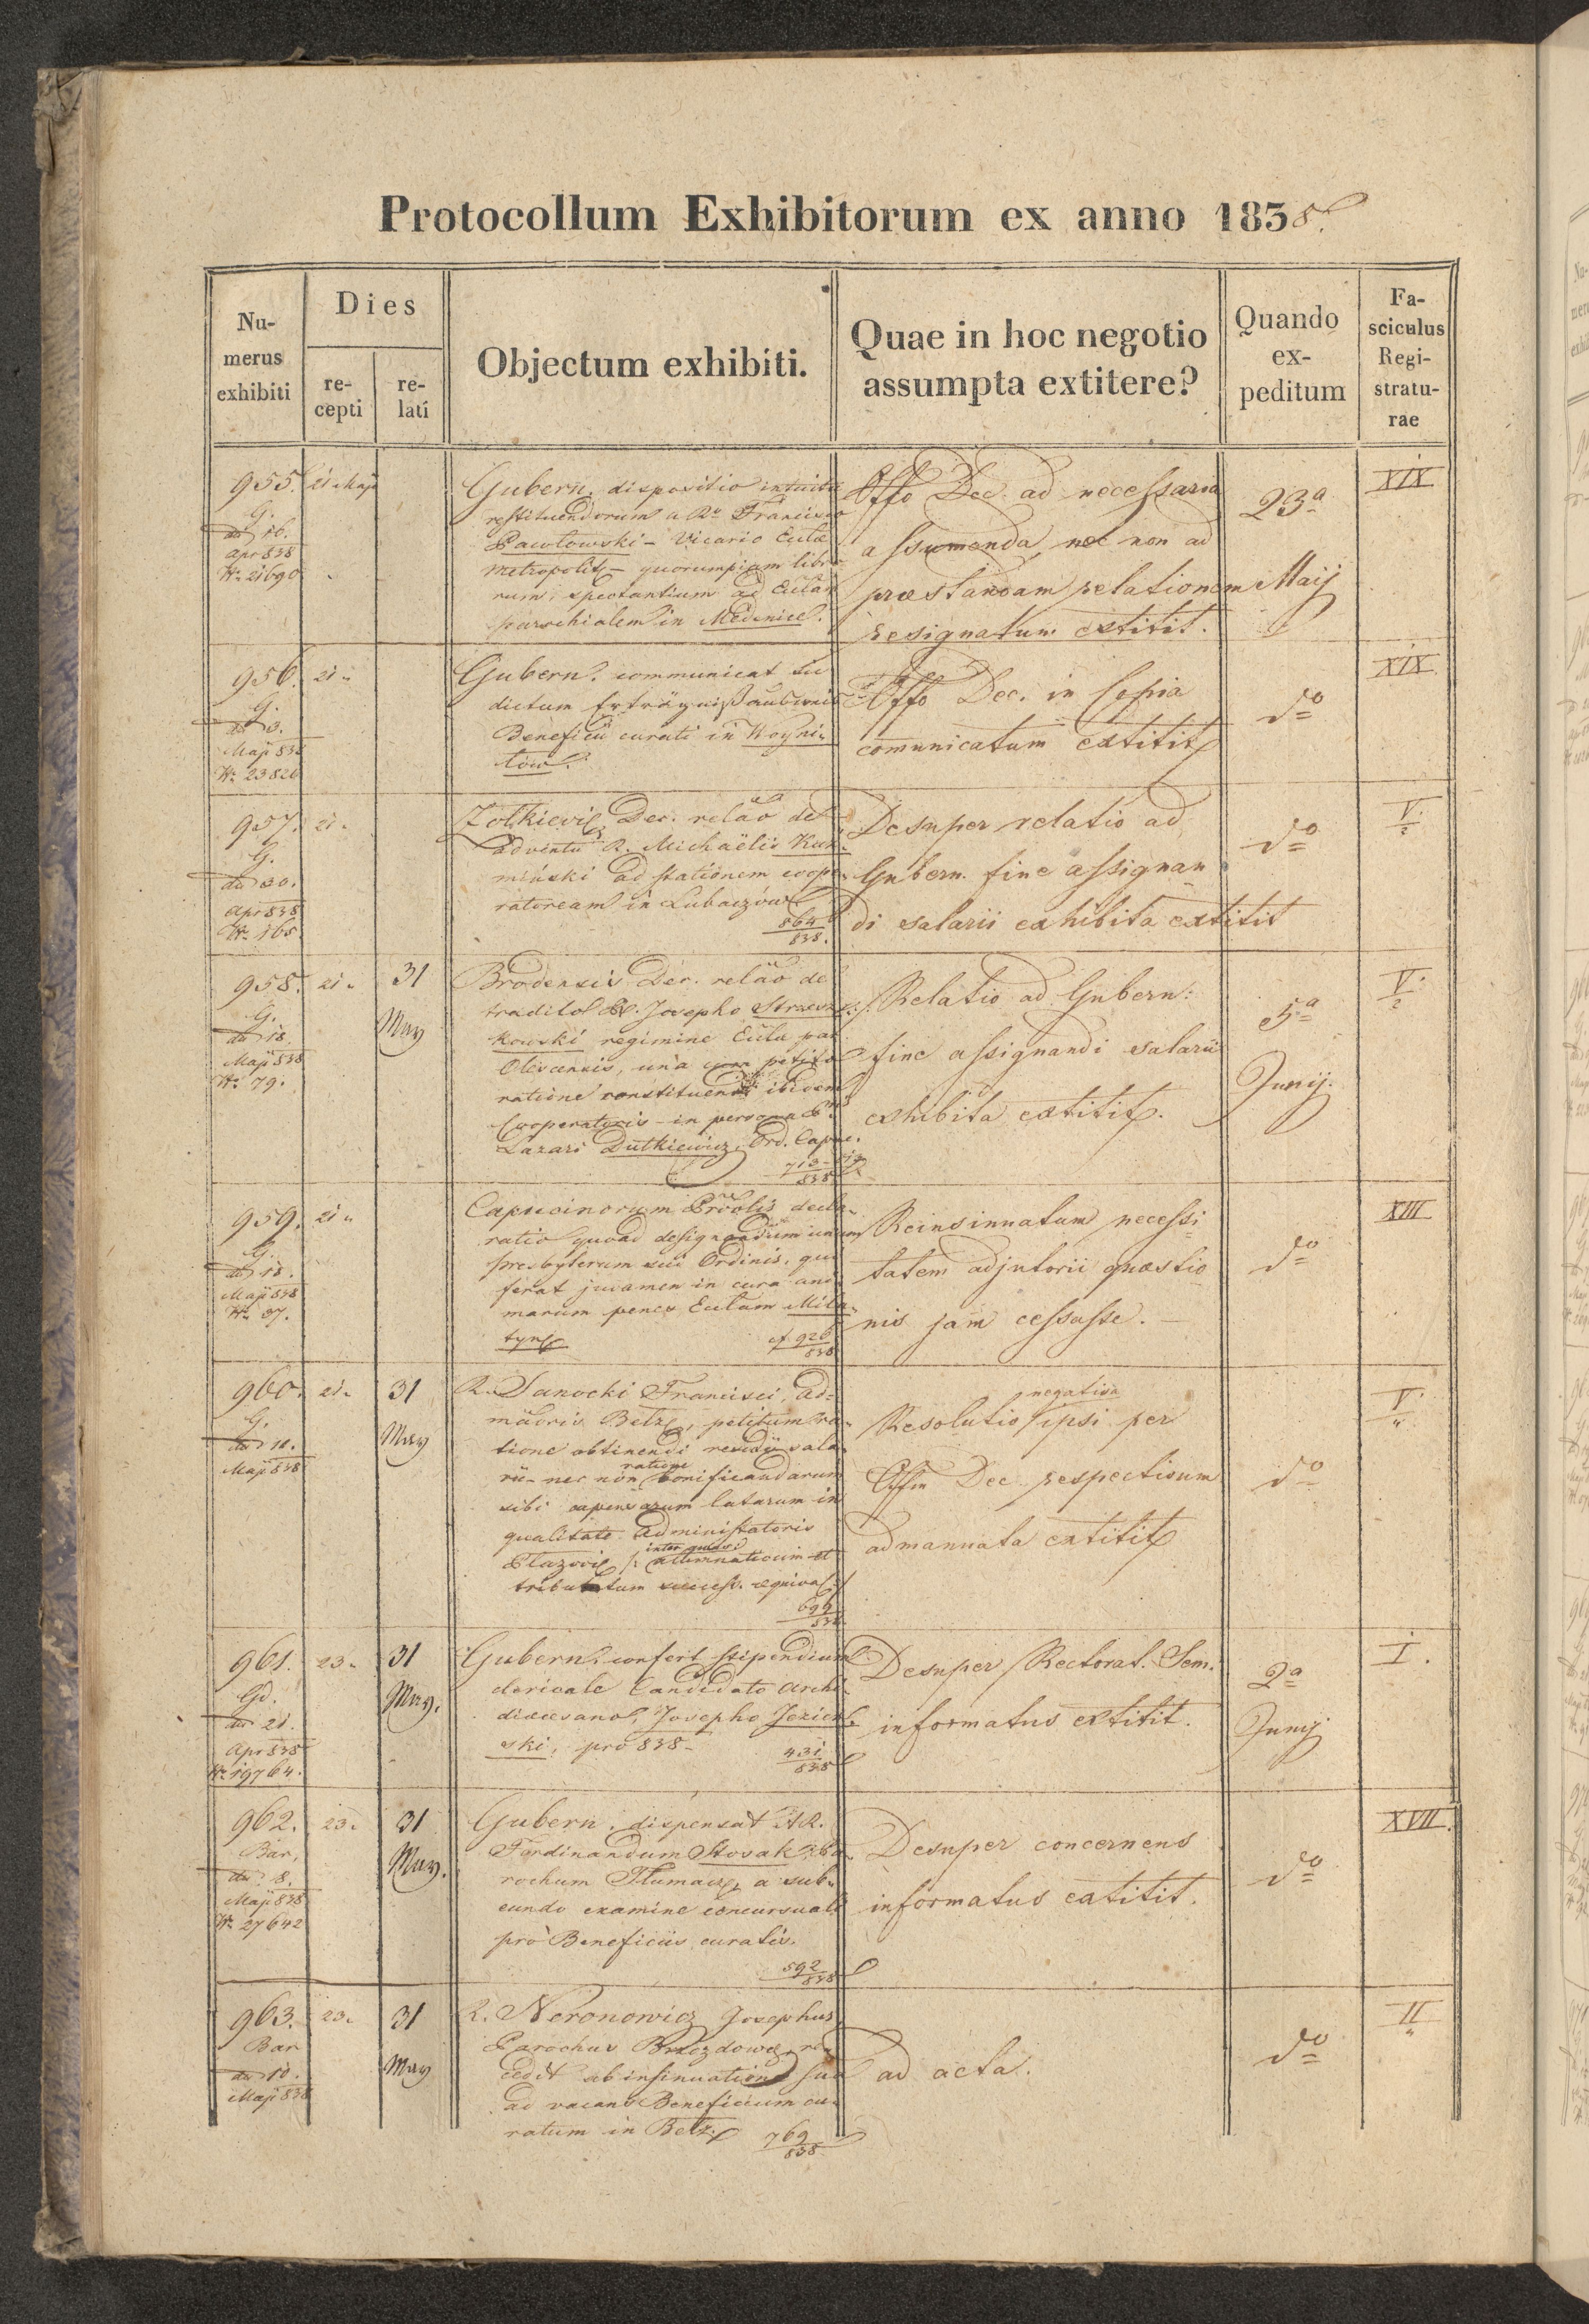 Protocollum Exhibitorum ex anno 1838.
Nu-
merus
exhibiti
Dies
re-
cepti
re-
lati
Objectum exhibiti.
Quae in hoc negotio
assumpta extitere?
Quando
ex-
peditum
Fa-
sciculus
Regi-
stratu-
rae
955.
G.
dto 16.
Apr 838
Nr. 21690
21 Maji
Gubern. dispositio intuitu
restituendorum a Rdo Francisco
Pawłowski - Vicario Eccltae
Metropolit - quorumpiam libro-
rum, spectantium ad Ecclam
parochialem in Medenice.
Offo Dec. ad necessaria
assumenda, nec non ad
praestandam relationem
resignatum extitit.
23a
Maij
XIX
956.
G.
dto 3.
Maji 838
Nr. 23826
21 "
Gubern. communicat
dictum Erträgnißausweis
Beneficii curati in Woyni-
łow.
Offo Dec. in Copia
comunicatum extitit
do
XIX
957.
G.
dto 30.
Apr 838
Nr. 165
21 "
Zolkievi. Dec. relao de
adventu R. Michaëlis Kuk-
miński ad stationem coope-
ratoream in Lubaczów
864
838.
Desuper relatio ad
Gubern. fine assignan
di salarii exhibita extitit
do
V.
2
958.
G.
dto 18.
Maji 838
Nr. 79.
21 "
31
May
Brodensis Dec. relao de
tradito R. Josepho Strzesz-
kowski regimine Eccla par
Olescensis, una cum petito
ratione constituendi ibidem
Cooperatoris - in persona Rdi
Lazari Dutkiewicz, Ord. Capuc.
713
838
Relatio ad Gubern:
fine assignandi salarii
exhibita extitit.
5a
Junij.
V.
2
959.
G.
dto 18.
Maji 838
Nr. 37.
21 "
Capucinorum Provlis decla-
ratio quoad designandum unum
presbyterum sui Ordinis, qui
ferat juvamen in cura ani-
marum penes Ecclam Miła-
tyn
cf 926
838
Reinsinuatum necessi
tatem adjutorii quaestio
nis jam cessasse. -
do
XIII
960.
G.
dto 10.
Maji 838
21 "
31
May
R. Sanocki Francisci, Ad-
mtoris Belz, petitum ra-
tione obtinendi residui sala
rii - nec non ratione bonificandarum
sibi expensarum latarum in
qualitate Administratoris
699
838
Resolutio negativa ipsi per
Offm Dec. respectivum
admanuata extitit
do
V.
"
961.
Gd.
dto 21.
Apr 838
Nr. 19764.
23 "
31
May.
Gubern. confert stipendium
clericale Candidato Archi-
dioecesano, Josepho Jezier-
ski, pro 838 -
431
838
Desuper Rectorat. Sem.
informatus extitit.
2a
Junij
I.
962.
Bar.
dto 8.
Maji 838
Nr. 27642
23 "
31
May.
Gubern. dispensat AR.
Ferdinandum Stosak Pa-
rochum Tłumacz, a sub-
eundo examine concursuali
pro Beneficiis curatis.
592
838
Desuper concernens
informatus extitit.
do
XVII.
963.
Bar
dto 10.
Maji 838
23 "
31
May
R. Neronowicz Josephus
Parochus Brzozdowce, re-
cedit ab insinuatione sua
ad vacans Beneficium cu-
ratum in Belz.
769
838
ad acta.
do
II
"